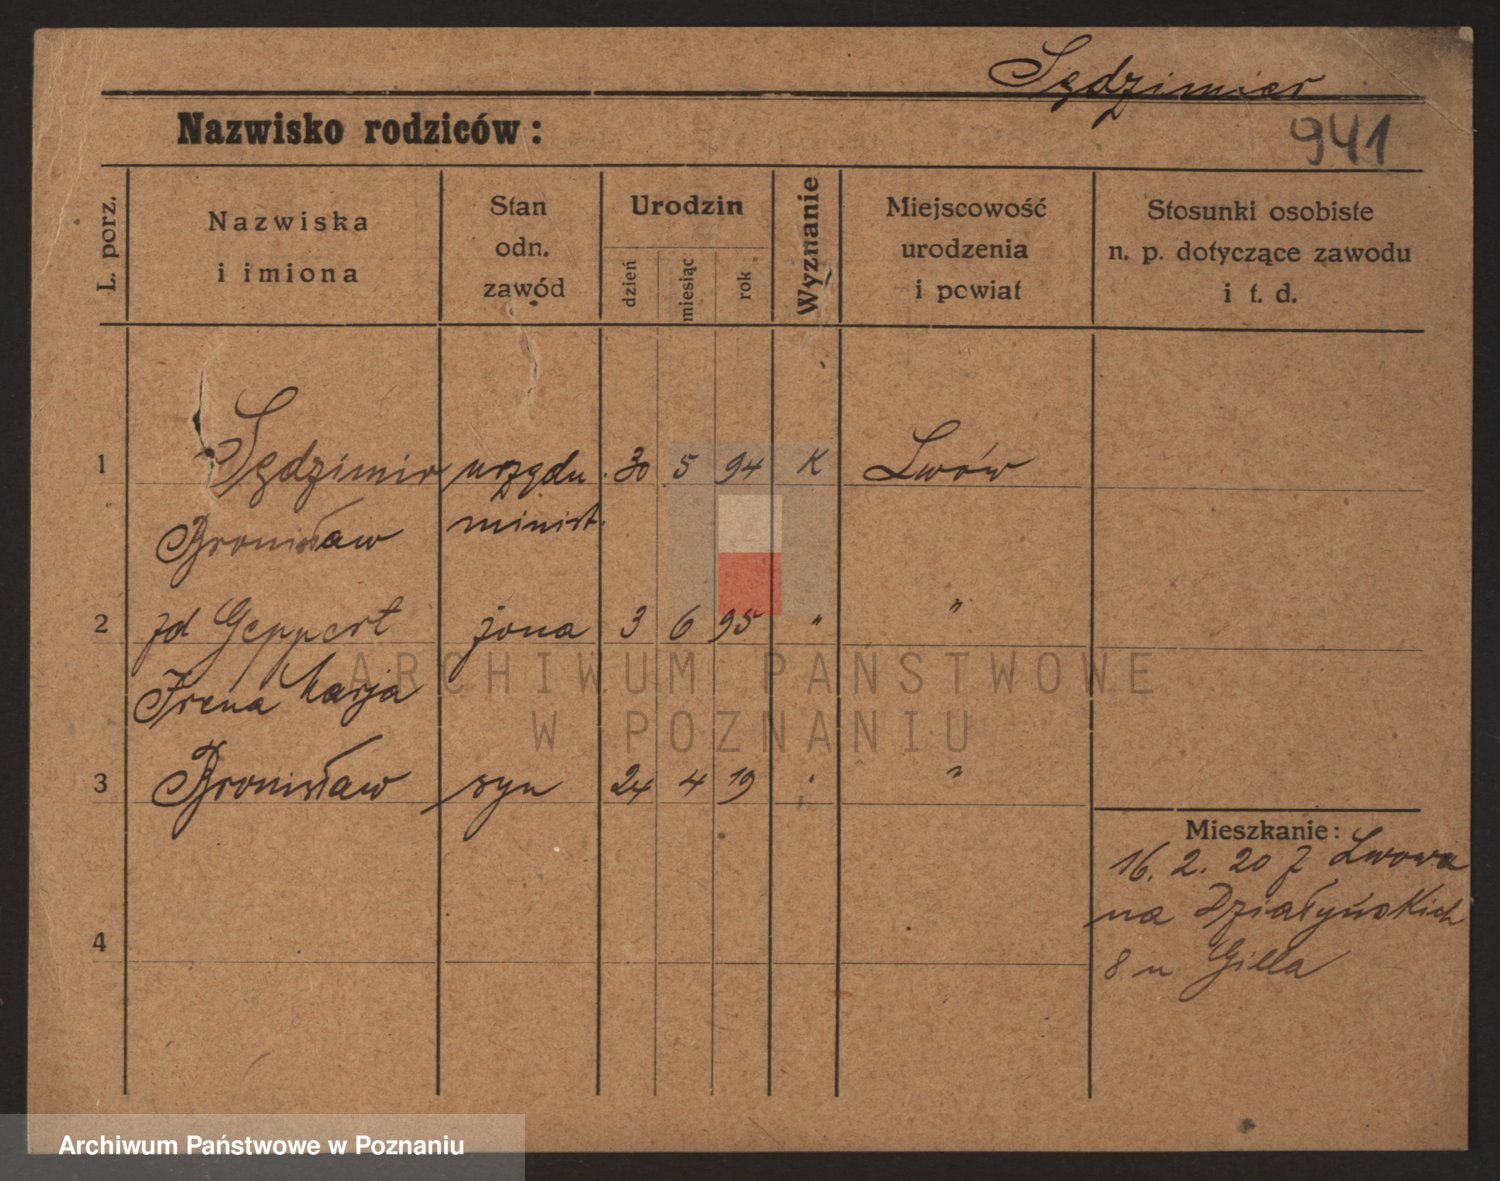 Sędzimier
Nazwisko rodziców:
941
L. porz.
Nazwiska
i imiona
Stan
odn.
zawód
Urodzin
dzień
miesiąc
rok
Wyznanie
Miejscowość
urodzenia
i powiat
Stosunki osobiste
n. p. dotyczące zawodu
i t. d.
1 Sędzimir urzędn. 30 5 94 K Lwów
Bronisław minist.
2 zd Geppert żona 3 6 95 " "
Irena Marja
3 Bronisław syn 24 4 19 " "
Mieszkanie:
16. 2. 20 z Lwowa
na Działyńskich
8 u Gilla
4
ARCHIWUM PAŃSTWOWE
W POZNANIU
Archiwum Państwowe w Poznaniu